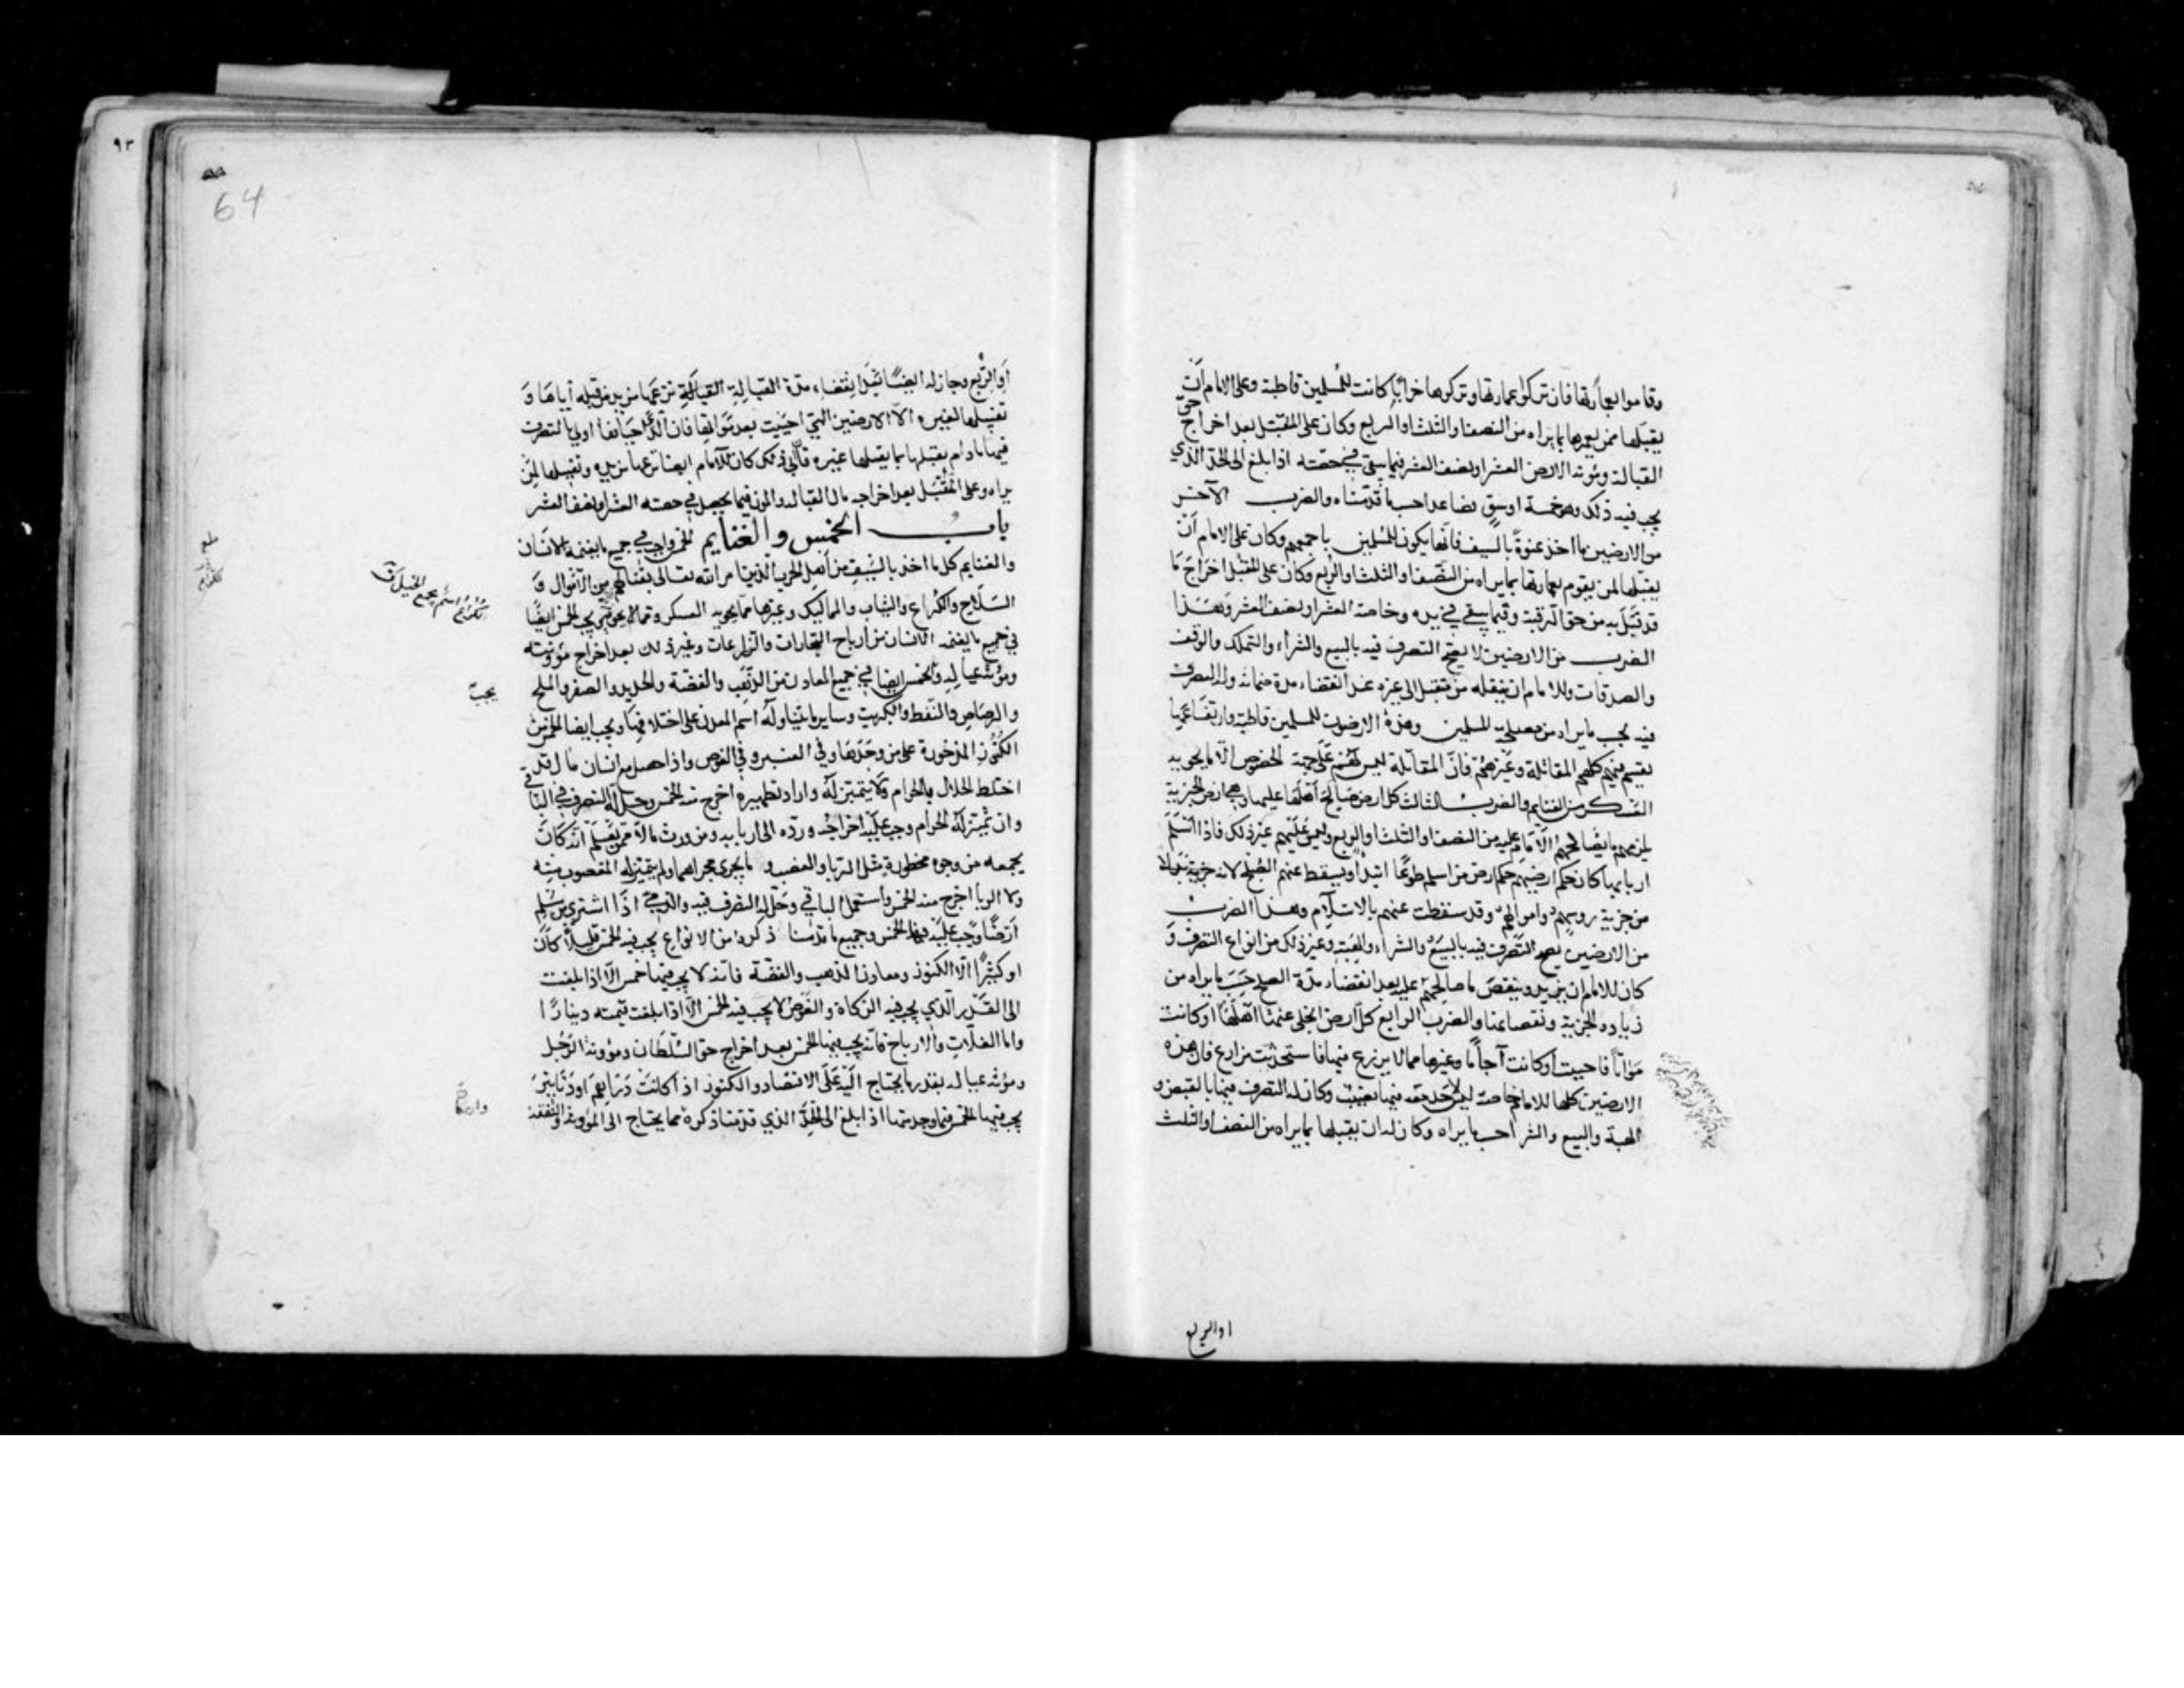 وقاموا بعمارتها فان تركوا عمارتها وتركوها خرابا كانت للمسلمين قاطبة وعلى الامام ان
يقبلها ممن يعمرها بما يراه من النصف او الثلث او الربع وكان على المتقبل بعد اخراج حق
القبالة ومؤنة الارض العشر او نصف العشر فيما يبقى في حصته اذا بلغ الى الحد الذي
يجب فيه ذلك وهو خمسة اوسق فصاعدا حسب ما قدمناه والضرب الآخر
من الارضين ما اخذ عنوة بالسيف فانها يكون للمسلمين باجمعهم وكان على الامام ان
يقبلها لمن يقوم بعمارتها بما يراه من النصف او الثلث او الربع وكان على المتقبل اخراج ما
قد قبل به من حق الرقبة وفيما يبقى في يده وخاصته العشر او نصف العشر وهذا
الضرب من الارضين لا يصح التصرف فيه بالبيع والشراء والتملك والوقف
والصدقات وللامام ان ينقله من متقبل الى غيره عند انقضاء مدة ضمانه وله التصرف
فيه بحسب ما يراه من مصلحة المسلمين وهذه الارضون للمسلمين قاطبة وارتفاعها
يقسم بينهم كلهم المقاتلة وغيرهم فان المقاتلة ليس لهم على جهة الخصوص الا ما يحويه
العسكر من الغنايم والضرب الثالث كل ارض صالح اهلها عليها وهي ارض الجزية
يلزمهم ما يصالحهم الامام عليه من النصف او الثلث او الربع وليس عليهم غير ذلك فاذا اسلم
اربابها كان حكم ارضيهم حكم ارض من اسلم طوعا ابتداء ويسقط عنهم الصلح لانه جزية بدلا
من جزية روسهم واموالهم وقد سقطت عنهم بالاسلام وهذا الضرب
من الارضين يصح التصرف فيه بالبيع والشراء والهبة وغير ذلك من انواع التصرف و
كان للامام ان يزيد وينقص ما صالحهم عليه بعد انقضاء مدة الصلح حسب ما يراه من
زيادة الجزية ونقصانها والضرب الرابع كل ارض انجلى عنها اهلها او كانت
مواتا فاحييت او كانت آجاما وغيرها مما لا يزرع فيها فاستحدثت مزارع فان هذه
الارضين كلها للامام خاصة ليس لاحد معه فيها نصيب وكان له التصرف فيها بالقبض و
الهبة والبيع والشرا حسب ما يراه وكان له ان يقبلها بما يراه من النصف او الثلث
او الربع
٩٣
64
او الربع وجاز له ايضا بعد انقضاء مدة القبالة نزعها من يد من قبله اياها و
تقبيلها لغيره الا الارضين التي احييت بعد مواتها فان الذي احياها اولى بالتصرف
فيها ما دام يقبلها بما يقبلها غيره فان ابى ذلك كان للامام ايضا نزعها من يده وتقبيلها لمن
يراه وعلى المتقبل بعد اخراجه مال القبالة والمون فيما يحصل في حصته العشر او نصف العشر
باب الخمس والغنايم الخمس واجب في جميع ما يغنمه الانسان
والغنايم كل ما اخذ بالسيف من اهل الحرب الذين امر الله تعالى بقتالهم من الاموال و
السلاح والكراع والثياب والمماليك وغيرها مما يحويه العسكر ومما لا يحويه يجب الخمس ايضا
في جميع ما يغنمه الانسان من ارباح التجارات والزراعات وغير ذلك بعد اخراج مؤونته
ومؤنة عياله والخمس ايضا في جميع المعادن من الذهب والفضة والحديد والصفر والملح
والرصاص والنفط والكبريت وساير ما يتناوله اسم المعدن على اختلافها ويجب ايضا الخمس من
الكنوز المذخورة على من وجدها وفي العنبر وفي الغوص واذا حصل مع انسان مال قد
اختلط الحلال بالحرام ولا يتميز له واراد تطهيره اخرج منه الخمس وحل له التصرف في الباقي
وان تميز له الحرام وجب عليه اخراجه ورده الى اربابه ومن ورث مالا ممن يعلم انه كان
يجمعه من وجوه محظورة مثل الربا والغصب وما يجري مجراهما ولم يتميز له المغصوب منه
ولا الربا اخرج منه الخمس واستعمل الباقي وحل له التصرف فيه والذمي اذا اشترى من مسلم
ارضا وجب عليه فيها الخمس وجميع ما قدمنا ذكره من الانواع يجب فيه الخمس قليلا كان
او كثيرا الا الكنوز ومعادن الذهب والفضة فانه لا يجب فيها خمس الا اذا بلغت
الى القدر الذي يجب فيه الزكاة والغوص لا يجب فيه الخمس الا اذا بلغت قيمته دينارا
واما الغلات والارباح فانه يجب فيها الخمس بعد اخراج حق السلطان ومؤونة الرجل
ومؤنة عياله بقدر ما يحتاج اليه على الاقتصاد والكنوز اذا كانت دراهم او دنانير
يجب فيها الخمس فيما وجد منها اذا بلغ الى الحد الذي قدمنا ذكره مما يحتاج الى المؤونة والنفقة
الكراع اسم يجمع الخيل ق
يجب
وان كان